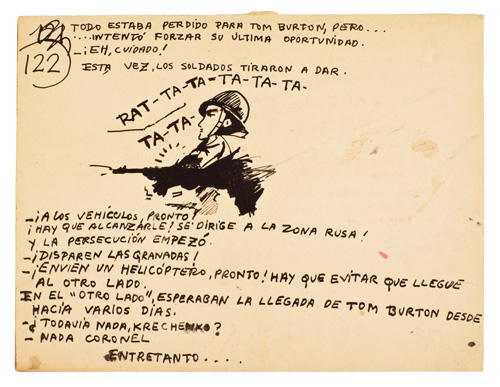 121
122
TODO ESTABA PERDIDO PARA TOM BURTON, PERO...
....INTENTÓ FORZAR SU ULTIMA OPORTUNIDAD.
–¡EH, CUIDADO!
ESTA VEZ, LOS SOLDADOS TIRARON A DAR.
RAT-TA-TA-TA-TA-TA-
TA-TA-
–¡A LOS VEHÍCULOS, PRONTO!
¡HAY QUE ALCANZARLE! SE DIRIGE A LA ZONA RUSA!
Y LA PERSECUCIÓN EMPEZÓ.
–¡DISPAREN LAS GRANADAS!
–¡ENVIEN UN HELICÓPTERO, PRONTO! HAY QUE EVITAR QUE LLEGUE
AL OTRO LADO.
EN EL "OTRO LADO", ESPERABAN LA LLEGADA DE TOM BURTON DESDE
HACÍA VARIOS DÍAS.
–¿TODAVÍA NADA, KRECHENKO?
– NADA CORONEL
ENTRETANTO....